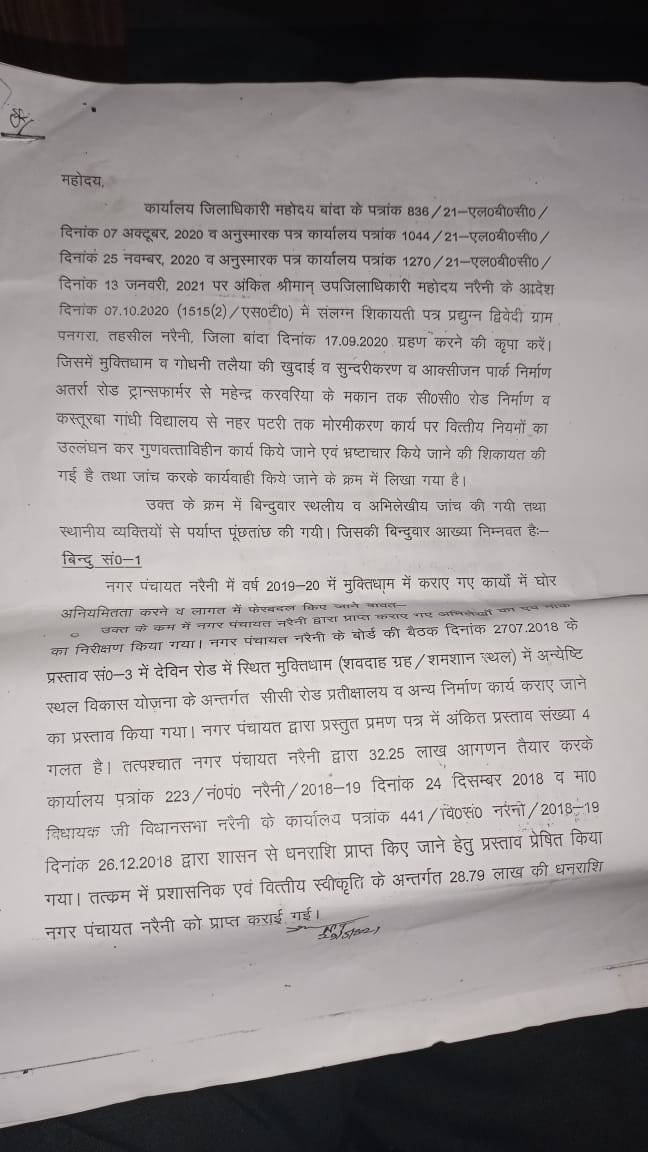 महोदय,
कार्यालय जिलाधिकारी महोदय बांदा के पत्रांक 836/21-एल०बी०सी०/
दिनांक 07 अक्टूबर, 2020 व अनुस्मारक पत्र कार्यालय पत्रांक 1044/21-एल०बी०सी०/
दिनांक 25 नवम्बर, 2020 व अनुस्मारक पत्र कार्यालय पत्रांक 1270/21-एल०बी०सी०/
दिनांक 13 जनवरी, 2021 पर अंकित श्रीमान् उपजिलाधिकारी महोदय नरैनी के आदेश
दिनांक 07.10.2020 (1515(2)/एस०टी०) में संलग्न शिकायती पत्र प्रद्युम्न द्विवेदी ग्राम
पनगरा, तहसील नरैनी, जिला बांदा दिनांक 17.09.2020 ग्रहण करने की कृपा करें।
जिसमें मुक्तिधाम व गोधनी तलैया की खुदाई व सुन्दरीकरण व आक्सीजन पार्क निर्माण
अतर्रा रोड ट्रान्सफार्मर से महेन्द्र करवरिया के मकान तक सी०सी० रोड निर्माण व
कस्तूरबा गांधी विद्यालय से नहर पटरी तक मोरमीकरण कार्य पर वित्तीय नियमों का
उल्लंघन कर गुणवत्ताविहीन कार्य किये जाने एवं भ्रष्टाचार किये जाने की शिकायत की
गई है तथा जांच करके कार्यवाही किये जाने के क्रम में लिखा गया है।
उक्त के क्रम में बिन्दुवार स्थलीय व अभिलेखीय जांच की गयी तथा
स्थानीय व्यक्तियों से पर्याप्त पूंछतांछ की गयी। जिसकी बिन्दुवार आख्या निम्नवत है:-
बिन्दु सं०-1
नगर पंचायत नरैनी में वर्ष 2019-20 में मुक्तिधाम में कराए गए कार्यों में घोर
अनियमितता करने व लागत में फेरबदल किए जाने बावत-
उक्त के कम में नगर पंचायत नरैनी द्वारा प्राप्त कराए गए अभिलेखों का एवं
का निरीक्षण किया गया। नगर पंचायत नरैनी के बोर्ड की बैठक दिनांक 2707.2018 के
प्रस्ताव सं०-3 में देविन रोड में स्थित मुक्तिधाम (शवदाह ग्रह/शमशान स्थल) में अन्येष्टि
स्थल विकास योजना के अन्तर्गत सीसी रोड प्रतीक्षालय व अन्य निर्माण कार्य कराए जाने
का प्रस्ताव किया गया। नगर पंचायत द्वारा प्रस्तुत प्रमण पत्र में अंकित प्रस्ताव संख्या 4
गलत है। तत्पश्चात नगर पंचायत नरैनी द्वारा 32.25 लाख आगणन तैयार करके
कार्यालय पत्रांक 223/नं०पं० नरैनी/2018-19 दिनांक 24 दिसम्बर 2018 व मा०
विधायक जी विधानसभा नरैनी के कार्यालय पत्रांक 441/वि०सं० नरैनी/2018-19
दिनांक 26.12.2018 द्वारा शासन से धनराशि प्राप्त किए जाने हेतु प्रस्ताव प्रेषित किया
गया। तत्कम में प्रशासनिक एवं वित्तीय स्वीकृति के अन्तर्गत 28.79 लाख की धनराशि
नगर पंचायत नरैनी को प्राप्त कराई गई।